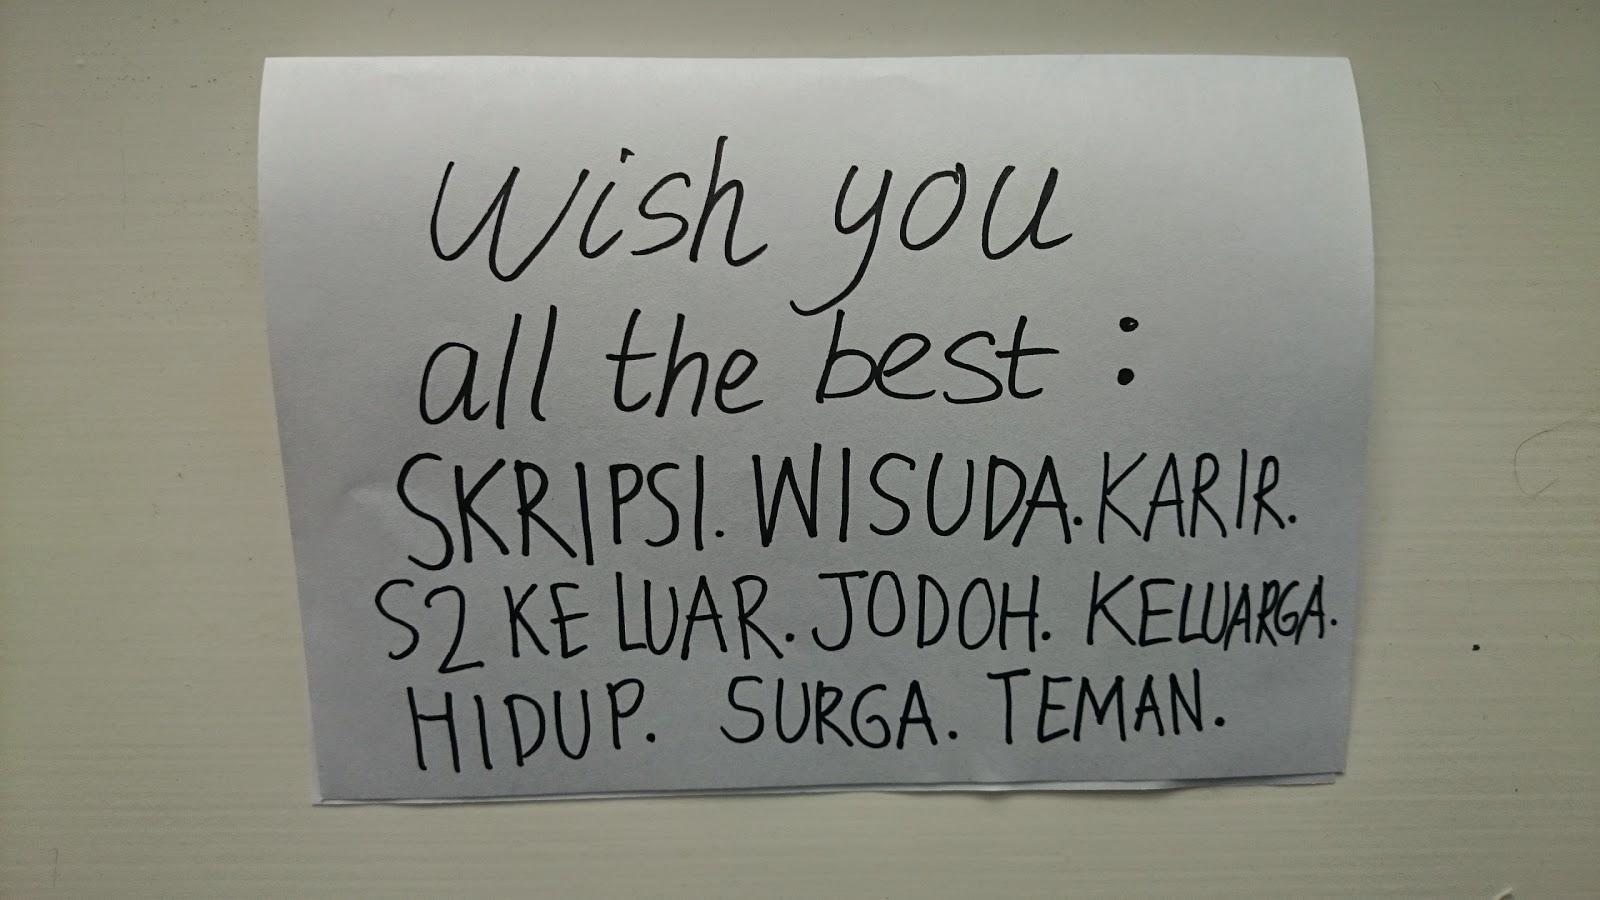 Wish you
all the best :
SKRIPSI. WISUDA. KARIR.
S2 KE LUAR. JODOH. KELUARGA.
HIDUP. SURGA. TEMAN.